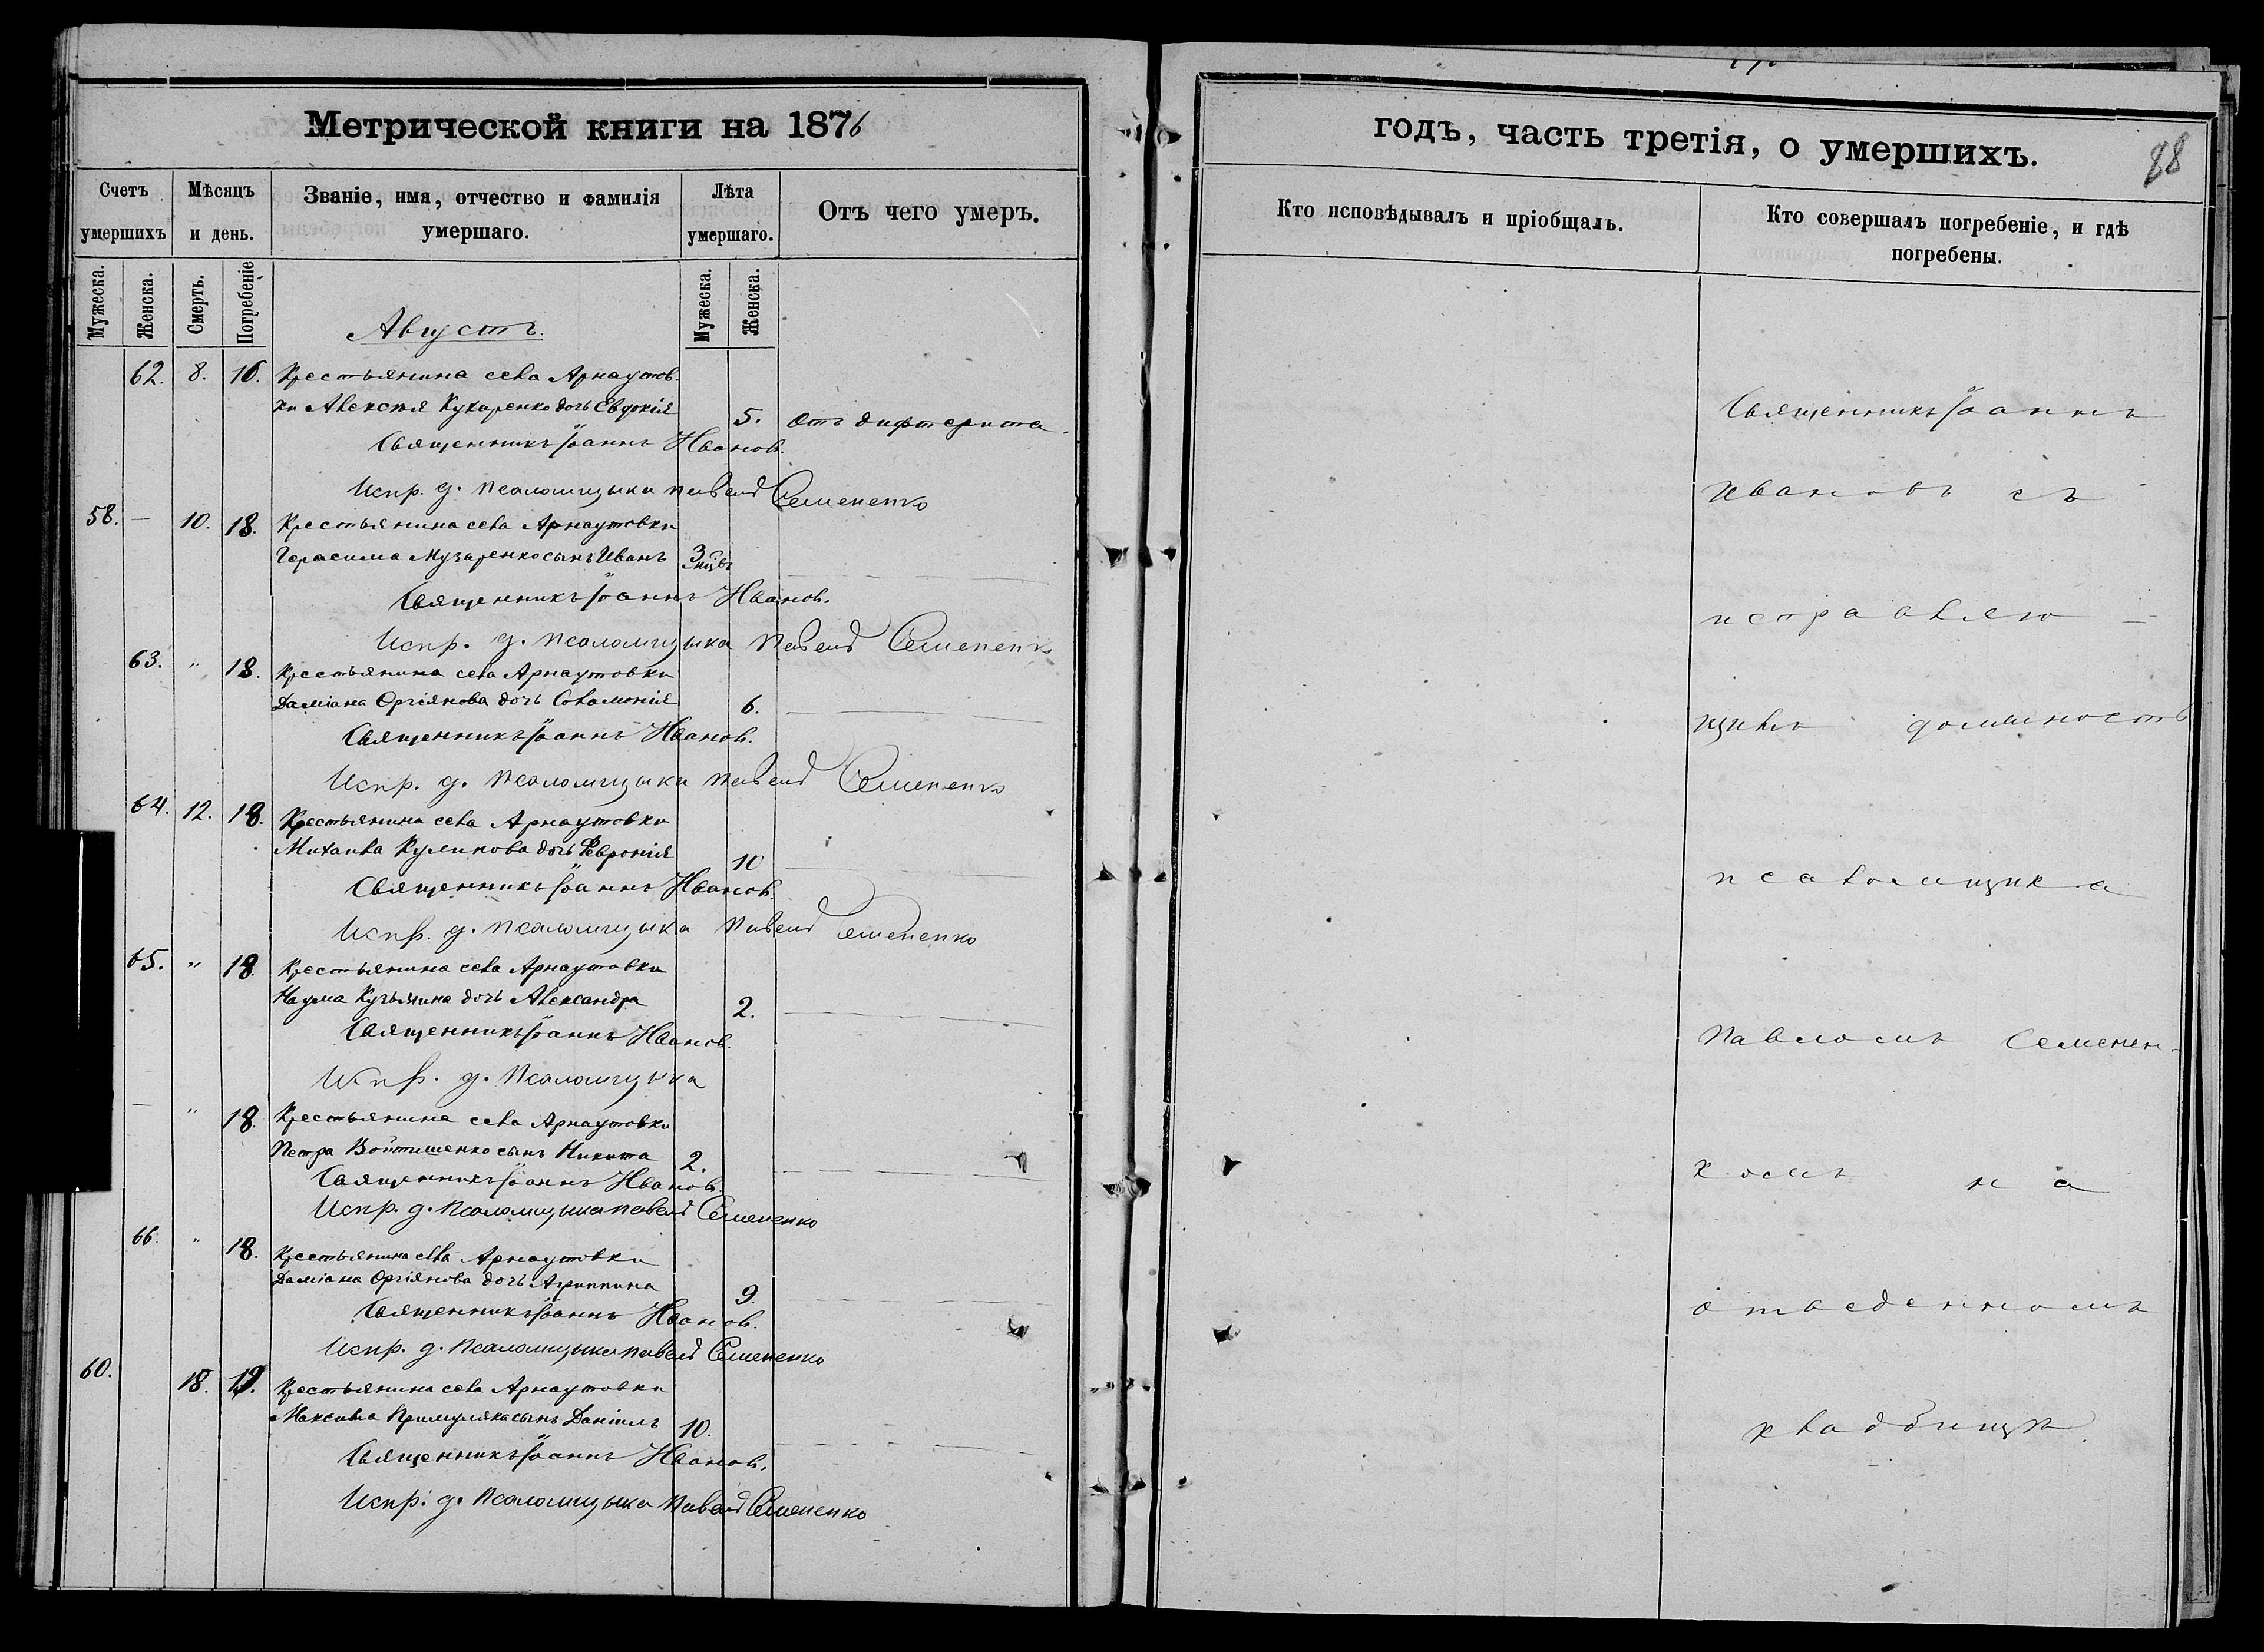 Метрической книги на 1876
Счетъ умершихъ
Мѣсяцъ и день.
Званіе, имя, отчество и фамилія умершаго.
Лѣта умершаго.
Отъ чего умеръ.
Мужеска. Женска. Смерть. Погребеніе Мужеска. Женска.
Августъ.
62. 8. 16. Крестьянина села Арнаутов-
ки Алексѣя Кухаренко дочь Евдокія 5. Отъ дифтерита.
Священникъ Іоаннъ Ивановъ.
Испр. д. псаломщика Павелъ Семененко
58. — 10. 18. Крестьянина села Арнаутовки
Герасима Музаренко сынъ Иванъ 3 мц҃въ
Священникъ Іоаннъ Ивановъ.
Испр. д. псаломщика Павелъ Семененко
63. " 18. Крестьянина села Арнаутовки
Даміана Оргіянова дочь Соломонія 6.
Священникъ Іоаннъ Ивановъ.
Испр. д. псаломщика Павелъ Семененко
64. 12. 18. Крестьянина села Арнаутовки
Михаила Куликова дочь Февронія 10
Священникъ Іоаннъ Ивановъ.
Испр. д. псаломщика Павелъ Семененко
65. " 18. Крестьянина села Арнаутовки
Наума Кузьмина дочь Александра 2.
Священникъ Іоаннъ Ивановъ.
Испр. д. псаломщика
— " 18. Крестьянина села Арнаутовки
Петра Войтишенко сынъ Никита 2.
Священникъ Іоаннъ Ивановъ.
Испр. д. псаломщика Павелъ Семененко
66. " 18. Крестьянина села Арнаутовки
Даміана Оргіянова дочь Агриппина 9.
Священникъ Іоаннъ Ивановъ.
Испр. д. псаломщика Павелъ Семененко
60. 18. 19. Крестьянина села Арнаутовки
Максима Примуляка сынъ Даніилъ 10.
Священникъ Іоаннъ Ивановъ.
Испр. д. псаломщика Павелъ Семененко
годъ, часть третія, о умершихъ.
88
Кто исповѣдывалъ и пріобщалъ.
Кто совершалъ погребеніе, и гдѣ погребены.
Священникъ Іоаннъ
Ивановъ съ
исправляю-
щимъ должность
псаломщика
Павломъ Семенен-
комъ на
отведенномъ
кладбищѣ.